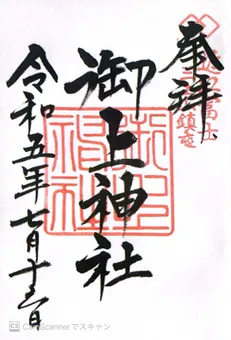 奉拝
近江富士
御上神社
御上神社
令和五年七月
CS CamScannerでスキャン